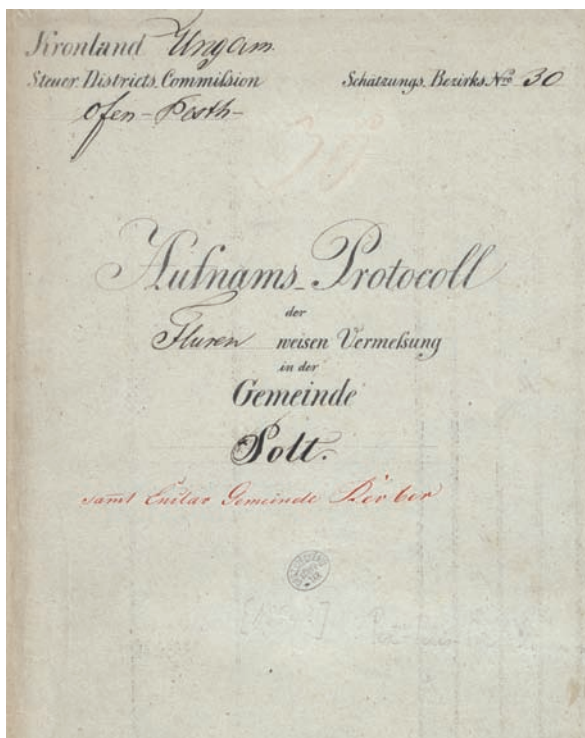 Kronland Ungarn
Steuer Districts Commißion Schätzungs Bezirks Nro 30
Ofen-Pesth-
Aufnams-Protocoll
der
Fluren weisen Vermeßung
in der
Gemeinde
Solt.
samt Enclav Gemeinde